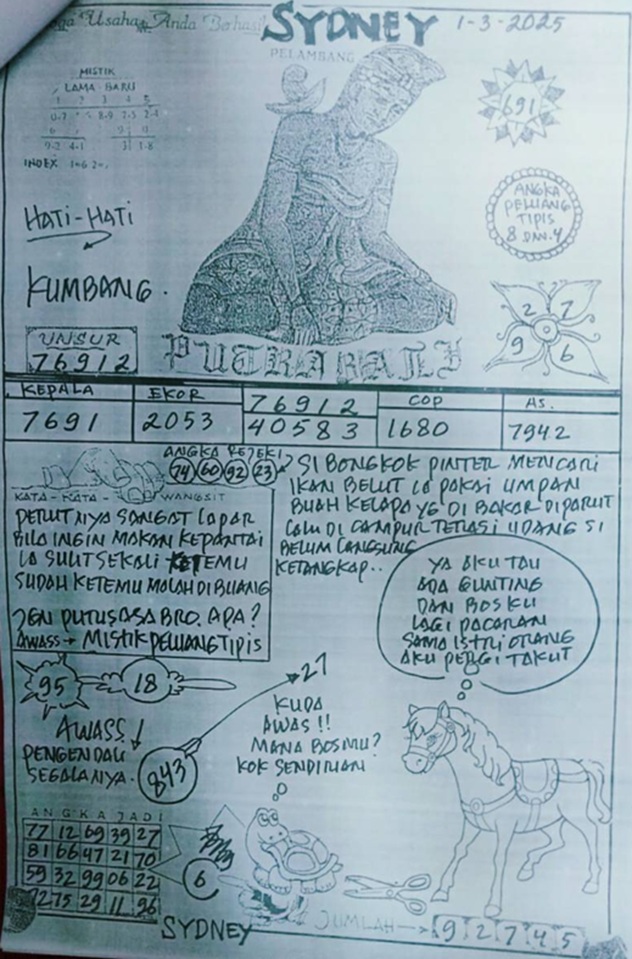 Usaha Anda Berhasil
SYDNEY
1-3-2025
PELAMBANG
MISTIK
LAMA BARU
1 2 3 4 5
0-7 8-9 2-5 2-4
6 9 0
9-2 4-1 3 1-8
INDEX
691
HATI-HATI
ANGKA
PELUANG
TIPIS
8 DAN 4
KUMBANG.
2 7
9 6
UNSUR
76912
PUTRA BALI
KEPALA EKOR 76912 COP AS.
7691 2053 40583 1680 7942
ANGKA REJEKI
74 60 92 23
KATA-KATA- WANGSIT
PERUTNYA SANGAT LAPAR
BILA INGIN MAKAN KEPANTAI
LA SULIT SEKALI KETEMU
SUDAH KETEMU MALAH DI BUANG
JGN PUTUS ASA BRO. APA?
AWASS → MISTIK PELUANG TIPIS
SI BONGKOK PINTER MENCARI
IKAN BELUT LA PAKAI UMPAN
BUAH KELAPA YG DI BAKAR DIPARUT
LALU DI CAMPUR TERASI UDANG SI
BELUM LANGSUNG
KETANGKAP..
YA AKU TAU
ADA GUNTING
DAN BOSKU
LAGI PACARAN
SAMA ISTRI ORANG
AKU PERGI TAKUT
95 18
27
AWASS!
PENGENDALI
SEGALANYA.
843
KUDA
AWAS!!
MANA BOSMU?
KOK SENDIRIAN
ANGKA JADI
77 12 69 39 27
81 66 47 21 70
59 32 99 06 22
72 75 29 11 96
6
SYDNEY
JUMLAH → 9 2 7 4 5